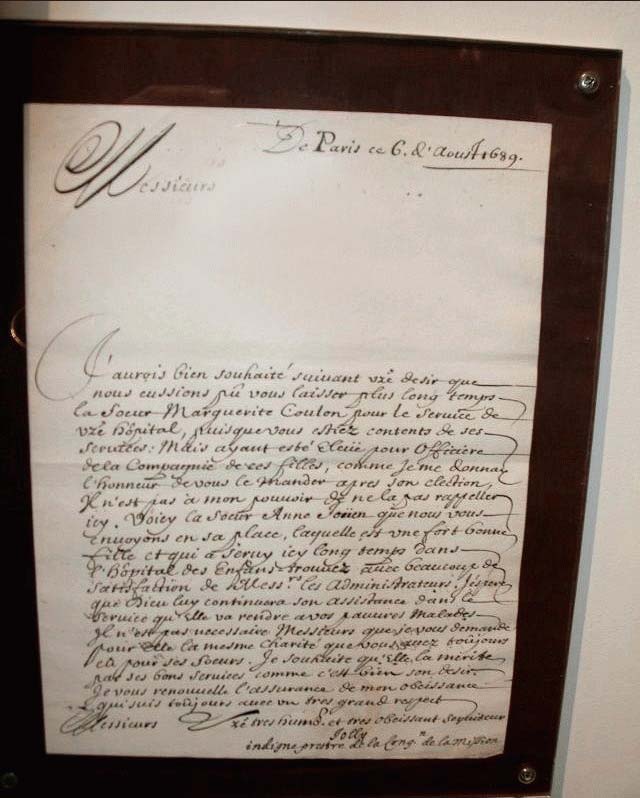 De Paris ce 6. d'Aoust 1689.
Messieurs
J'aurois bien souhaité suivant vrẽ desir que
nous eussions pû vous laisser plus long temps
la Soeur Marguerite Coulon pour le Service de
vrẽ hôpital, puisque vous estiez contents de ses
services: Mais ayant esté Eleüe pour Officiere
de la Compagnie de ces filles, comme Je me donnay
l'honneur de vous le mander apres son election,
Il n'est pas a mon pouvoir de ne la pas rappeller
icy. Voicy la Soeur Anne que nous vous
Envoyons en sa place, laquelle est vne fort bonne
fille et qui a servy icy long temps dans
l'hôpital des Enfans trouvez avec beaucoup de
satisfaction de Mess.rs les Administrateurs. J'espere
que Dieu luy continuera son assistance dans le
service qu'Elle va rendre a vos pauvres Malades
Il n'est pas necessaire Messieurs que je vous demande
pour Elle la mesme Charité que vous avez toûjours
eü pour ses Soeurs. Je souhaite qu'Elle la mérite
par ses bons services comme c'est bien son desir.
Je vous renouvelle l'assurance de mon obeissance
qui suis toûjours avec vn tres grand respect
Messieurs Vrẽ tres humb. et tres obeissant Serviteur
Jolly
indigne prestre de la Cong.n de la Mission